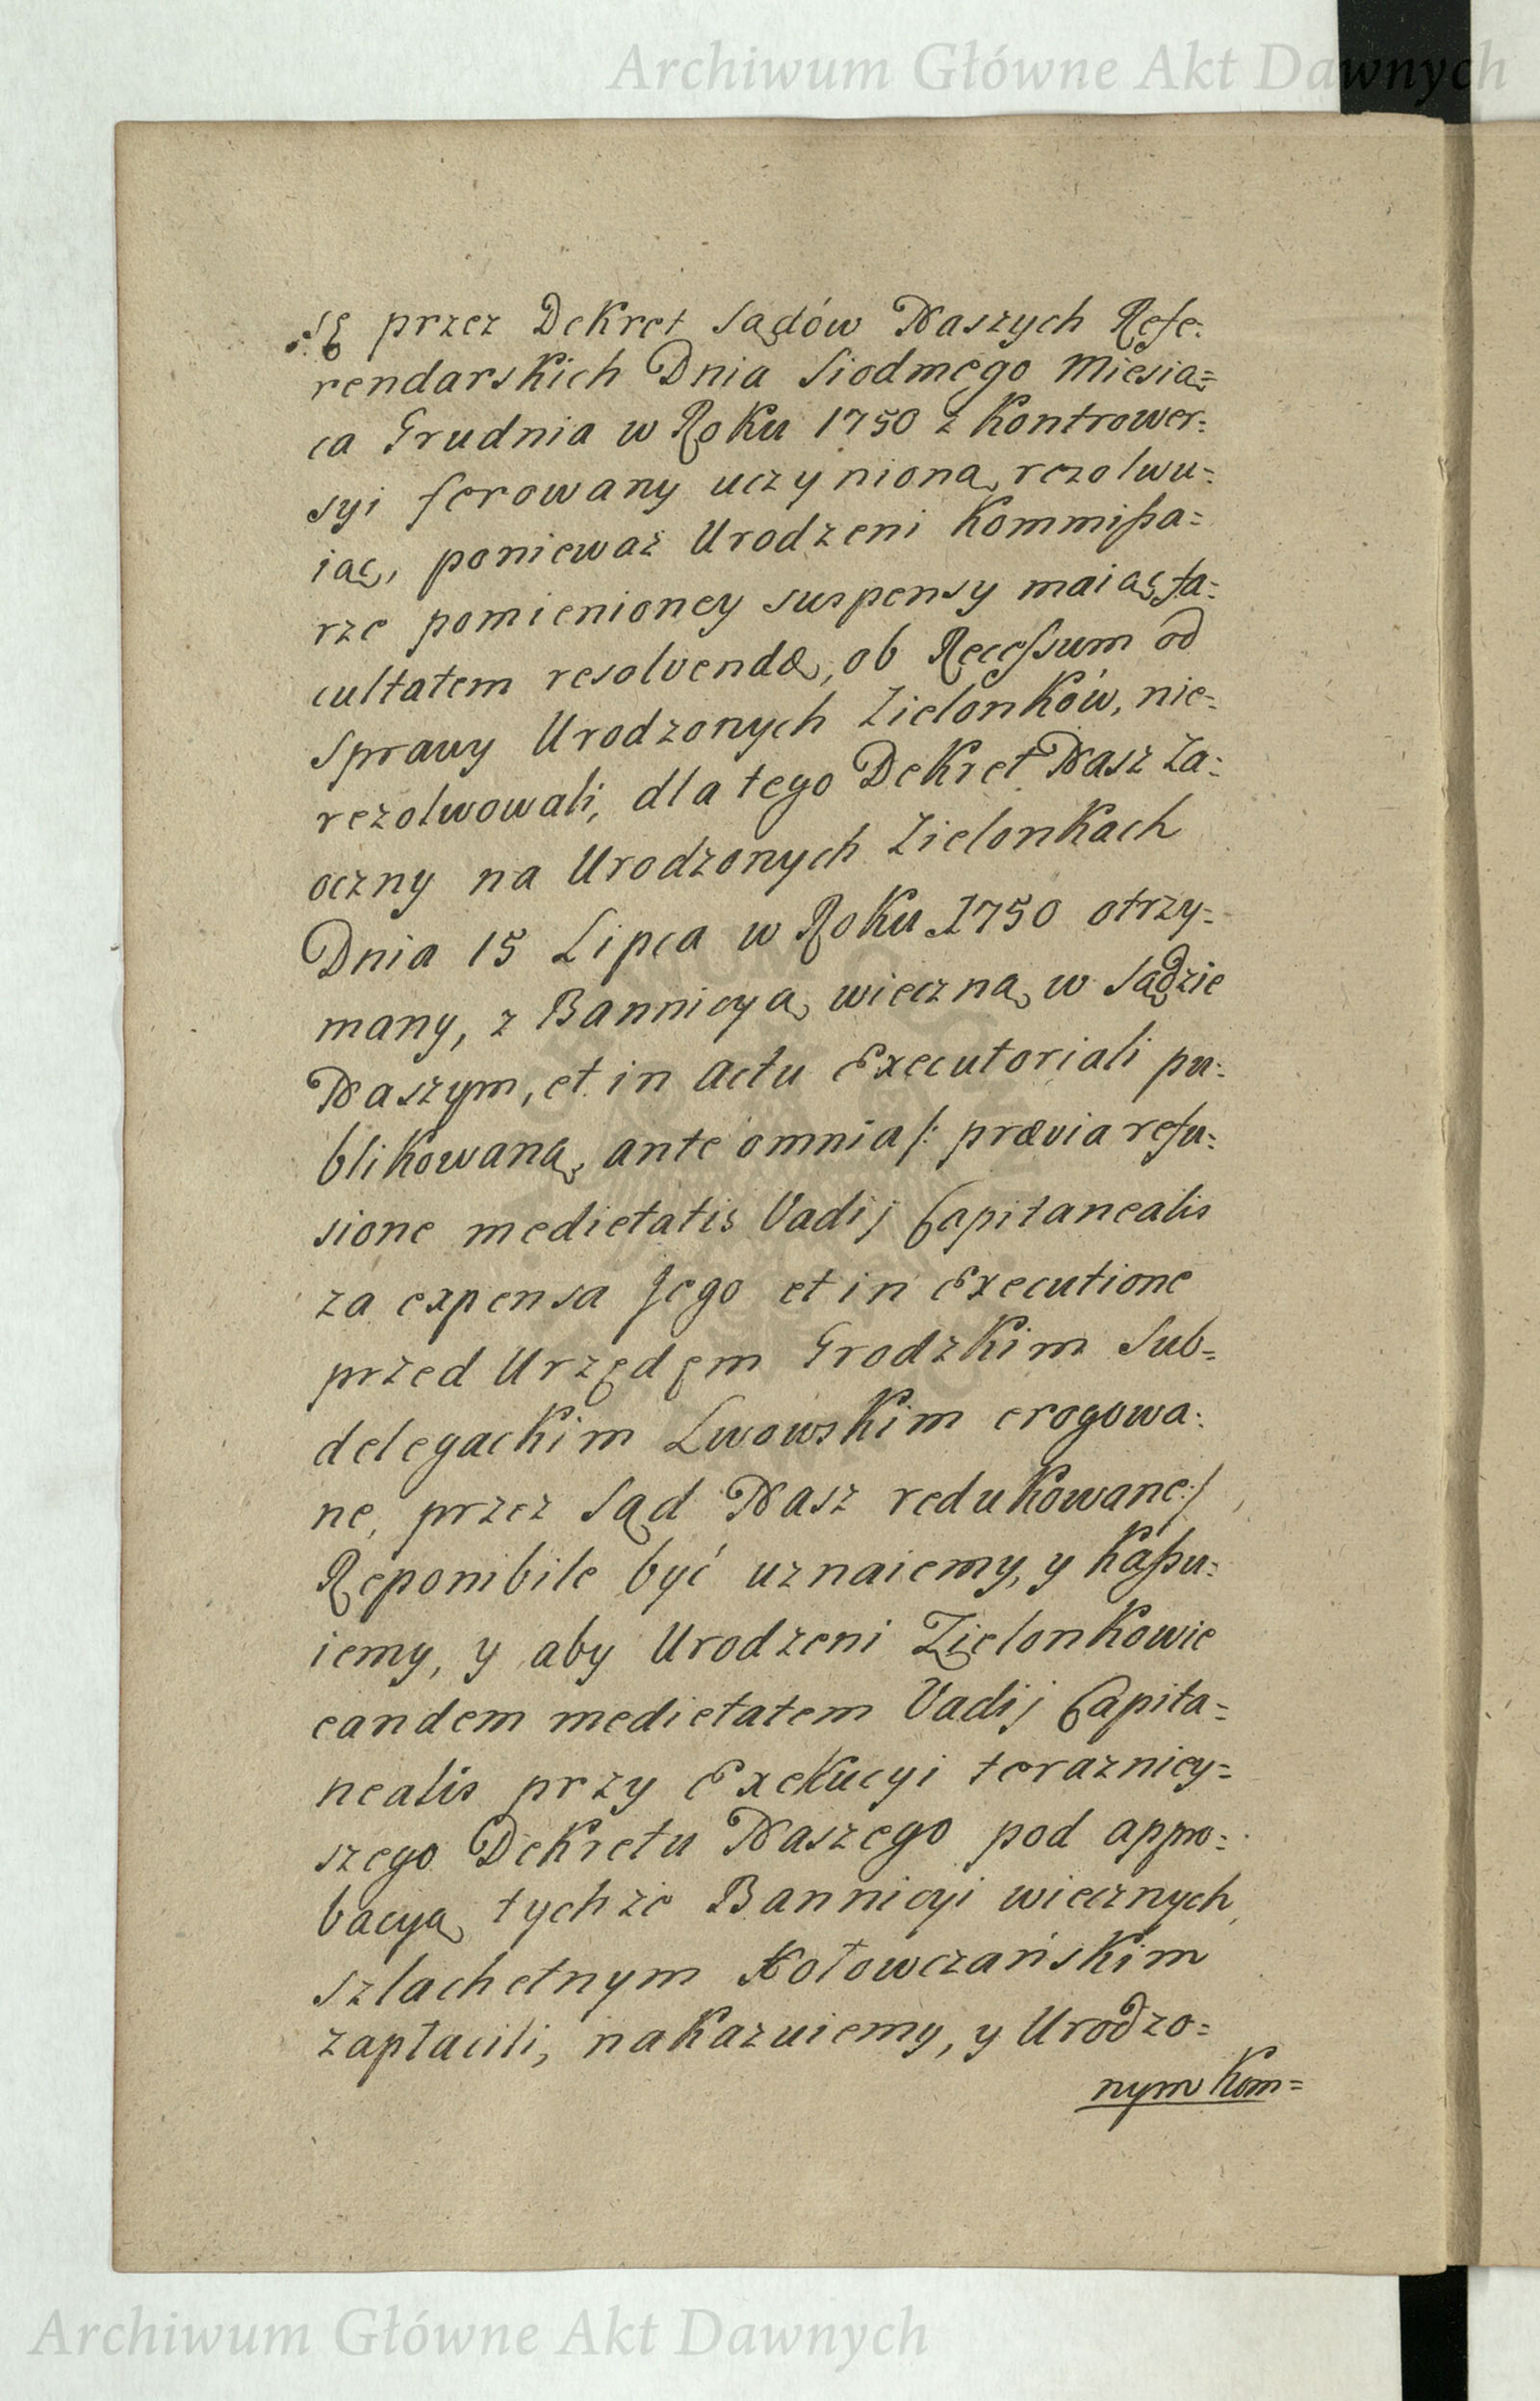 Archiwum Główne Akt Dawnych
sę przez Dekret Sądów Naszych Refe:
rendarskich Dnia Siodmego Miesią=
ca Grudnia w Roku 1750 z Kontrower:
syi ferowany uczynioną rezolwu:
iąc, ponieważ Urodzeni Kommißa=
rze pomienioney suspensy maiąc fa:
cultatem resolvendæ, ob Recessum od
Sprawy Urodzonych Zielonków, nie:
rezolwowali, dla tego Dekret Nasz Za:
oczny na Urodzonych Zielonkach
Dnia 15 Lipca w Roku 1750 otrzy=
many, z Bannicyą wieczną w Sądzie
Naszym, et in Actu Executoriali pu:
blikowaną, ante omnia /: prævia refu:
sione medietatis Vadij Capitanealis
za expensa Jego et in Executione
przed Urzędęm Grodzkim Sub=
delegackim Lwowskim erogowa:
ne, przez Sąd Nasz redukowane :/
Reponibile być uznaiemy, y Kaßu:
iemy, y aby Urodzeni Zielonkowie
eandem medietatem Vadij Capita=
nealis przy Exekucyi terazniey=
szego Dekretu Naszego pod appro:
bacyą tychże Bannicyi wiecznych,
Szlachetnym Kołowczańskim
zapłacili, nakazuiemy, y Urodzo=
nym Kom=
Archiwum Główne Akt Dawnych